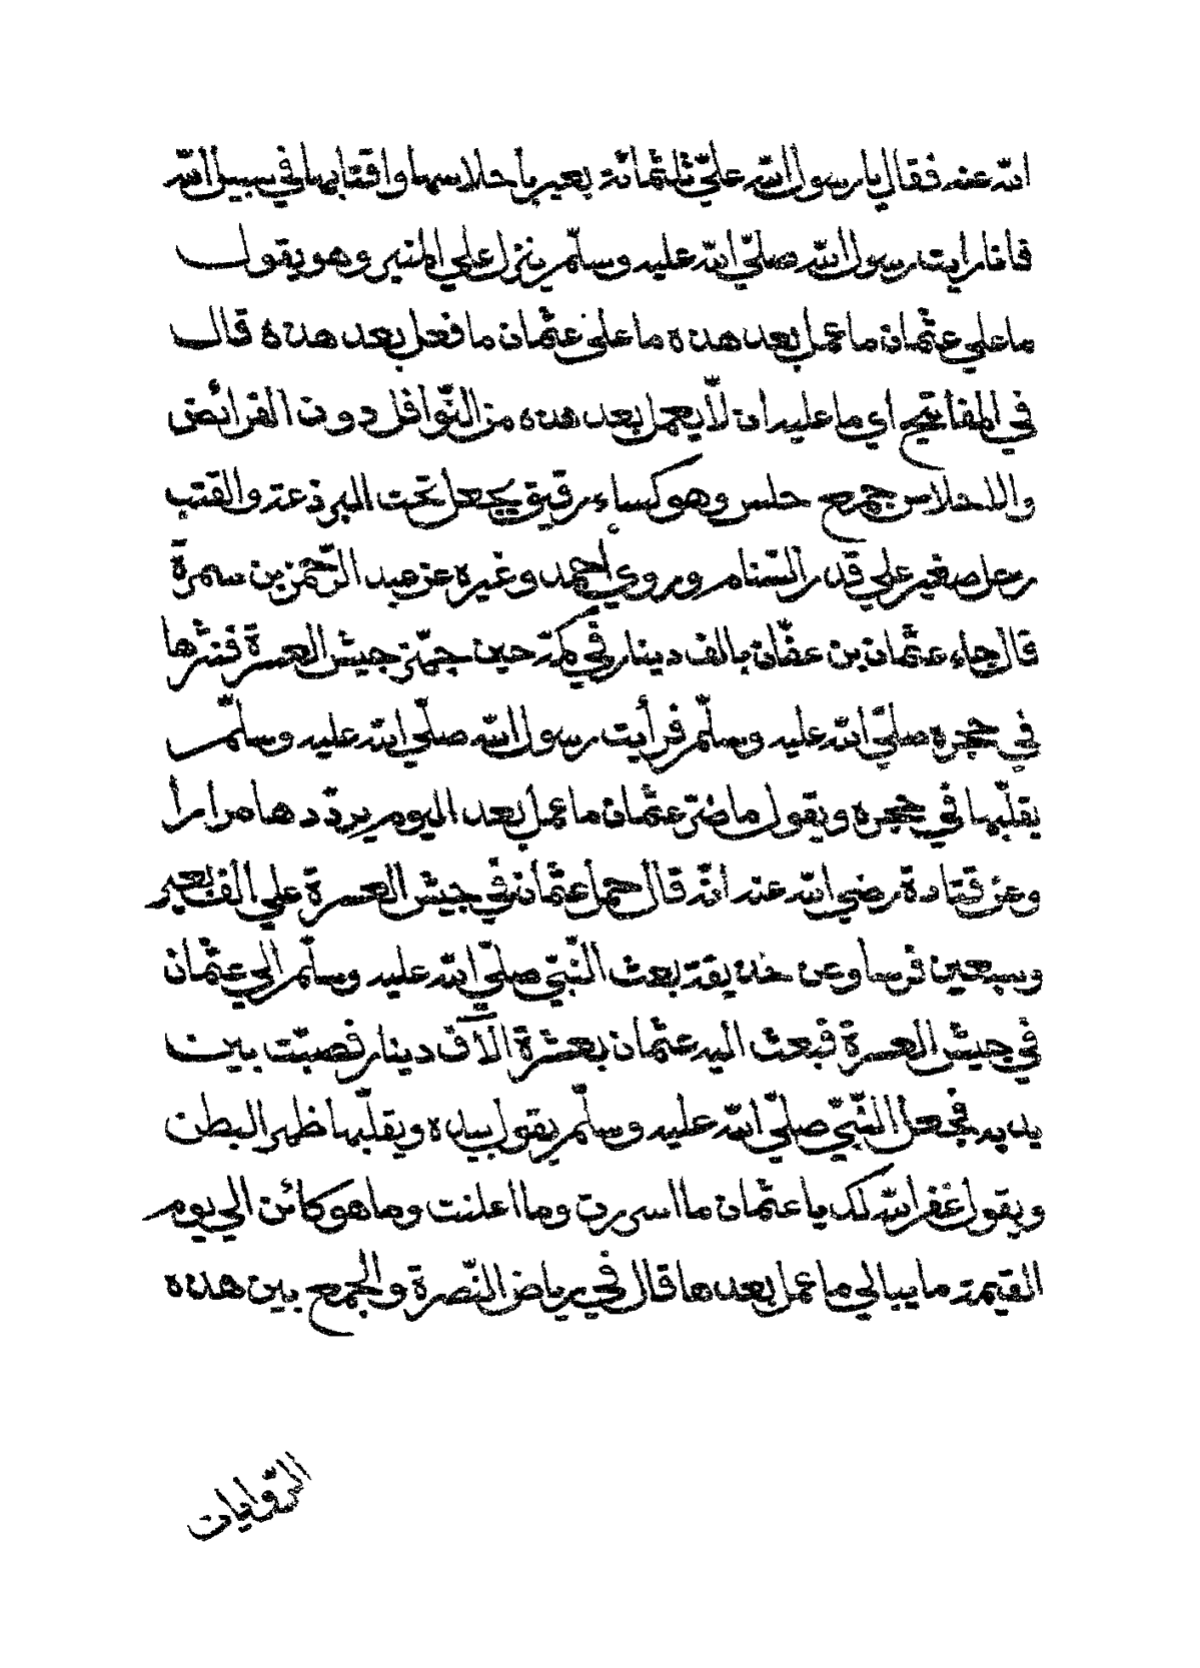 الله عنه فقال يا رسول الله عليّ ثلثمائة بعير بأحلاسها واقتابها في سبيل الله
فانا رايت رسول الله صلّي الله عليه وسلّم ينزل علي المنبر وهو يقول
ما علي عثمان ما عمل بعد هذه ما علي عثمان ما فعل بعد هذه قال
في المفاتيح اي ما عليه ان لّا يعمل بعد هذه من النّوافل دون الفرائض
والاحلاس جمع حلس وهو كساء رقيق يجعل تحت البرذعة والقتب
رحل صغير علي قدر السّنام وروي أحمد وغيره عن عبد الرّحمن بن سمرة
قال جاء عثمان بن عفّان بالف دينار في كمّه حين جهّز جيش العسرة فنثرها
في حجره صلّي الله عليه وسلّم فرأيت رسول الله صلّي الله عليه وسلّم
يقلّبها في حجره ويقول ما ضرّ عثمان ما عمل بعد اليوم يردّدها مرارا
وعن قتادة رضي الله عنه انّه قال حمل عثمان في جيش العسرة علي الف بعير
وسبعين فرسا وعن حذيفة بعث النّبيّ صلّي الله عليه وسلّم الي عثمان
في جيش العسرة فبعث اليه عثمان بعشرة آلاف دينار فصبّت بين
يديه فجعل النّبيّ صلّي الله عليه وسلّم يقول بيده ويقلّبها ظهرا لبطن
ويقول غفر الله لك يا عثمان ما اسررت وما اعلنت وما هو كائن الي يوم
القيمة ما يبالي ما عمل بعدها قال في رياض النّضرة والجمع بين هذه
الرّوايات